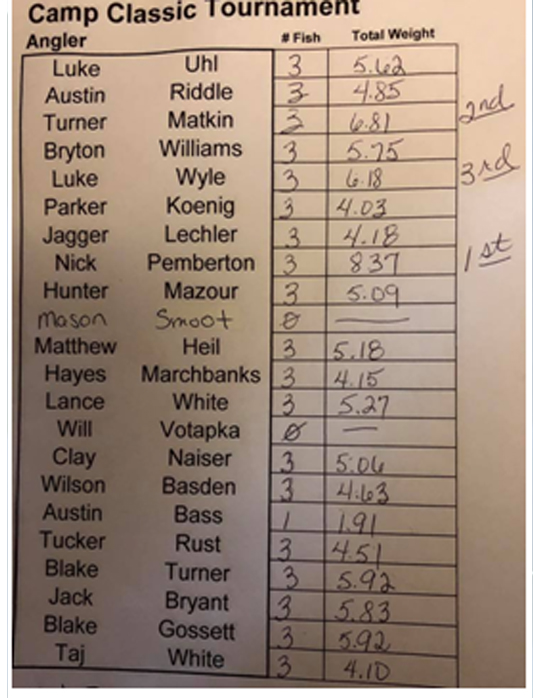 Camp Classic Tournament
Angler # Fish Total Weight
Luke Uhl 3 5.62
Austin Riddle 3 4.85
Turner Matkin 3 6.81 2nd
Bryton Williams 3 5.75
Luke Wyle 3 6.18 3rd
Parker Koenig 3 4.03
Jagger Lechler 3 4.18
Nick Pemberton 3 837 1st
Hunter Mazour 3 5.09
Mason Smoot 0 —
Matthew Heil 3 5.18
Hayes Marchbanks 3 4.15
Lance White 3 5.27
Will Votapka 0 —
Clay Naiser 3 5.06
Wilson Basden 3 4.63
Austin Bass 1 1.91
Tucker Rust 3 4.51
Blake Turner 3 5.92
Jack Bryant 3 5.83
Blake Gossett 3 5.92
Taj White 3 4.10